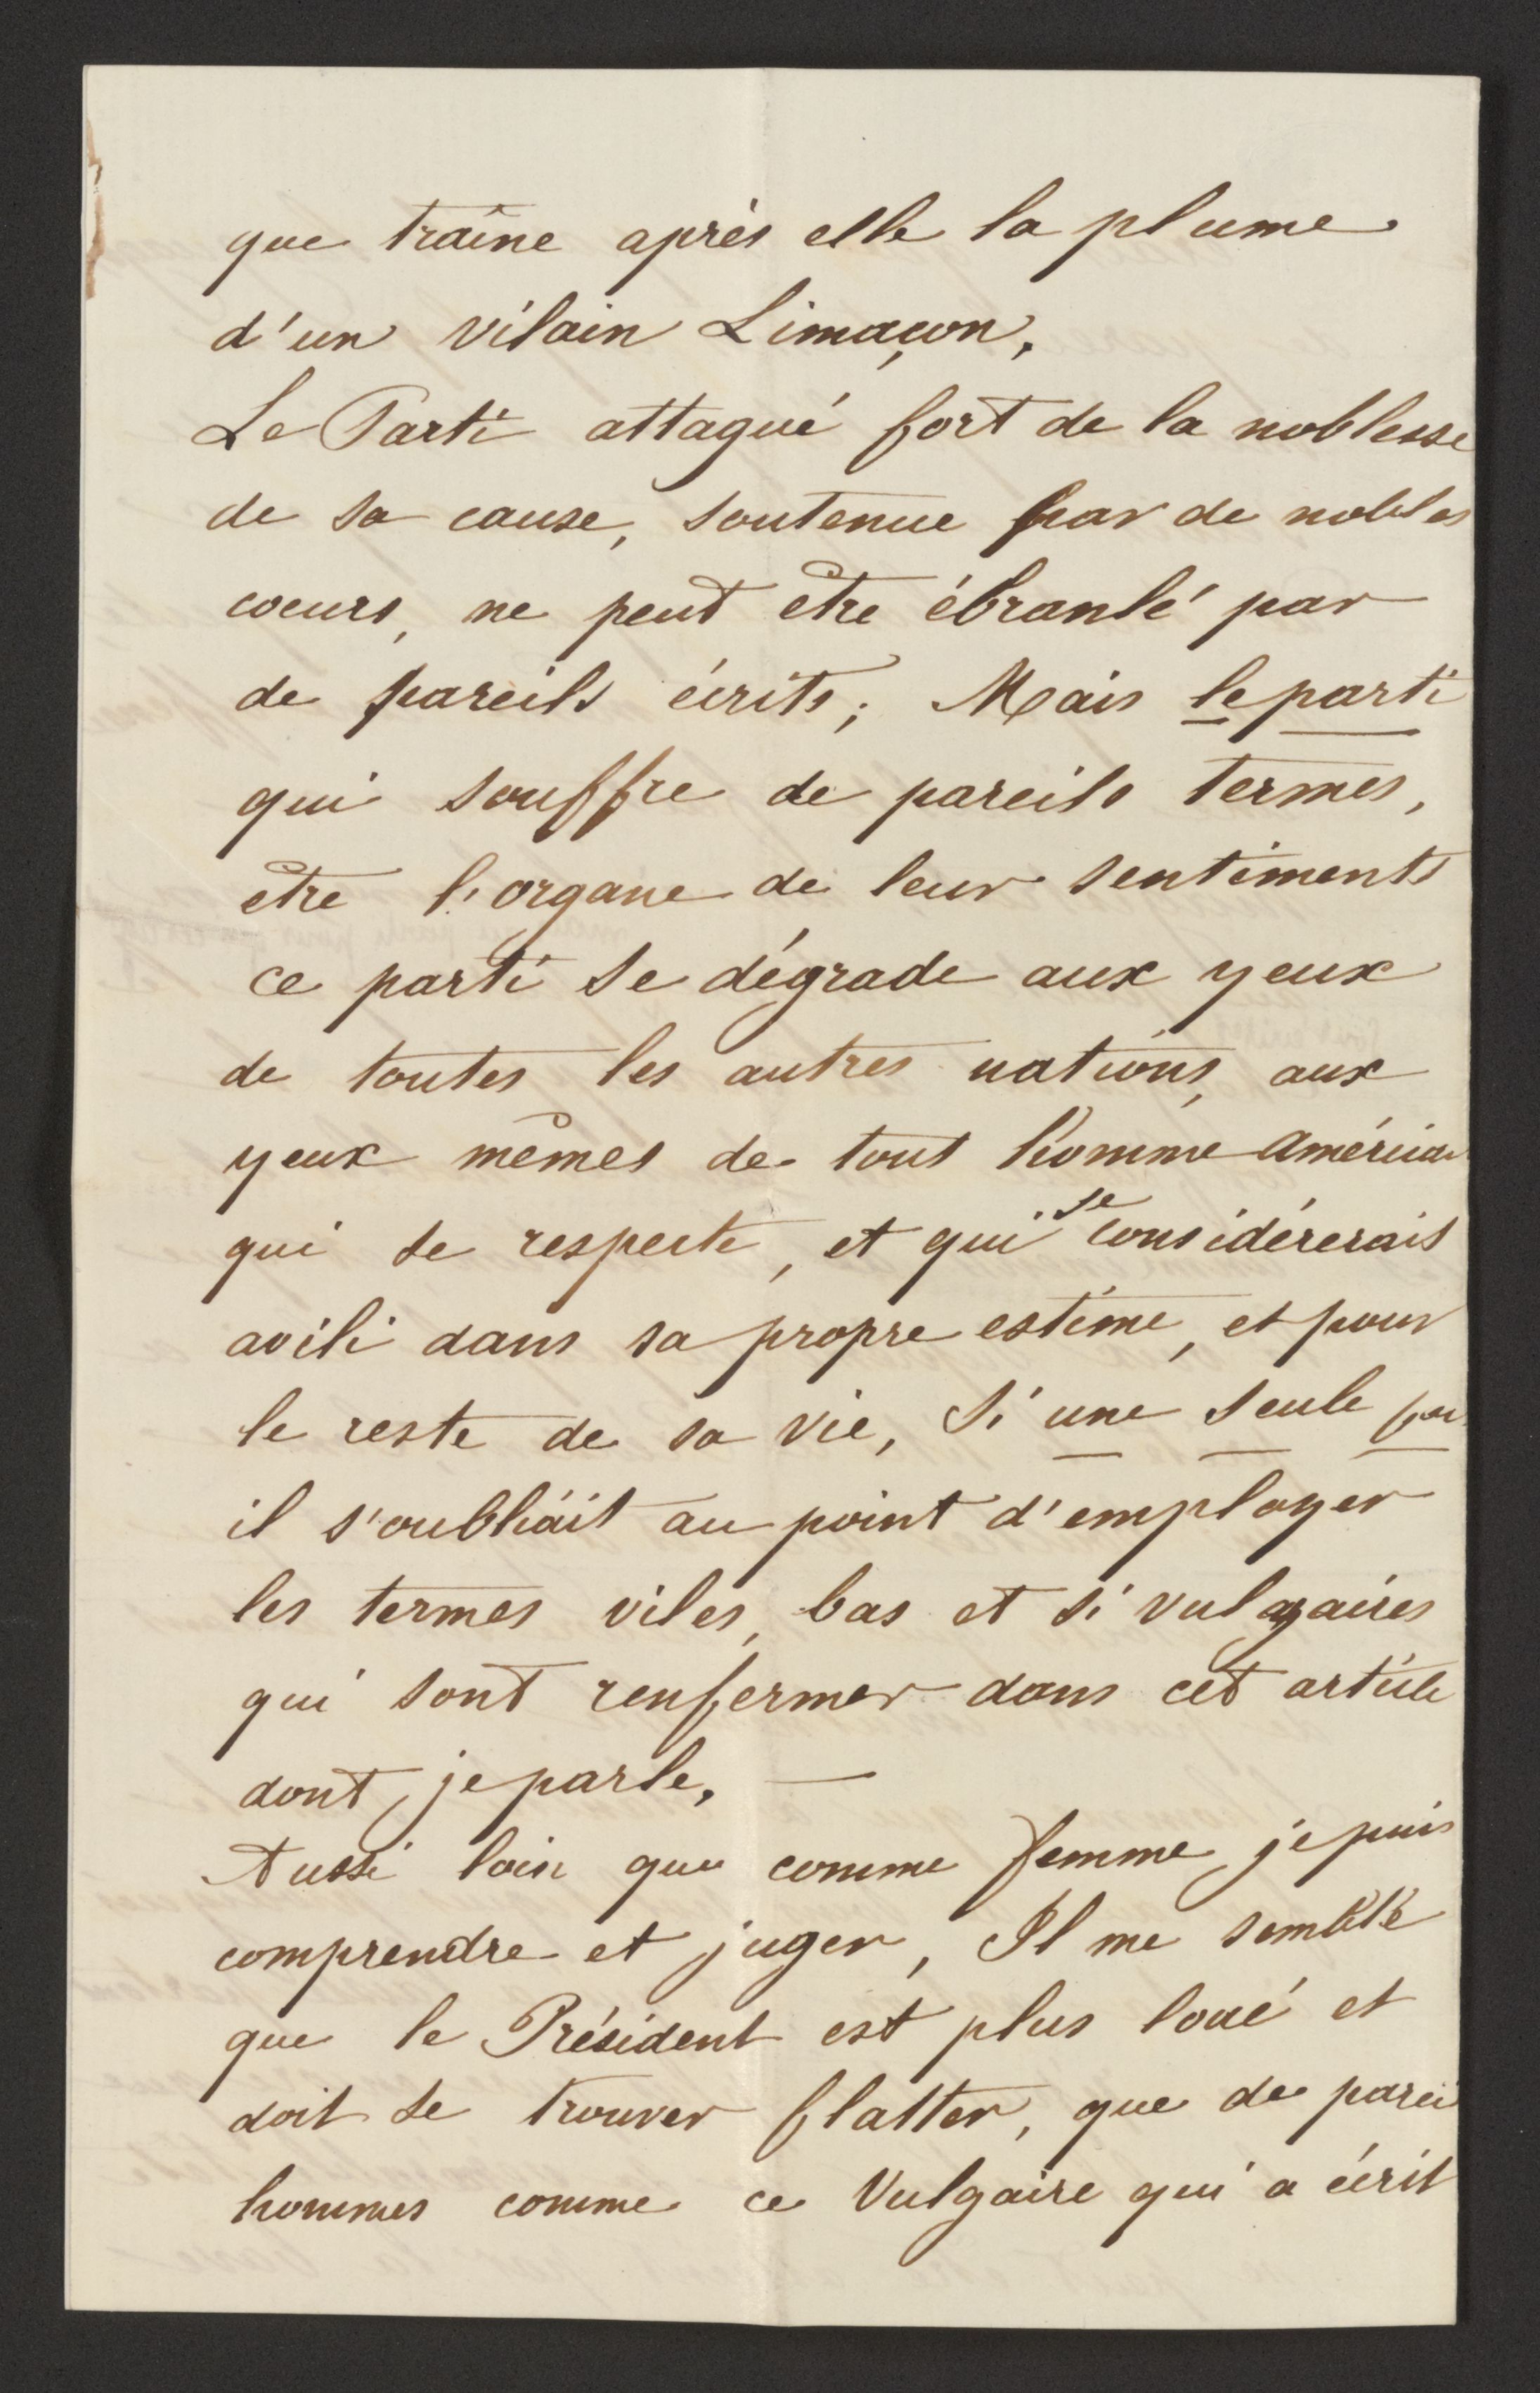 que traîne après elle la plume
d'un vilain Limaçon,
Le Parti attaqué fort de la noblesse
de sa cause, soutenue par de nobles
coeurs, ne peut être ébranlé par
de pareils écrits; Mais le parti
qui souffre de pareils termes,
être l'organe de leur sentiments
ce parti se dégrade aux yeux
de toutes les autres nations, aux
yeux mêmes de tout homme américa
qui se respecte, et qui se considérerait
avili dans sa propre estime, et pour
le reste de sa vie, Si une seule foi
il s'oubliait au point d'employer
les termes viles, bas et si vulgaires
qui sont renfermer dans cet article
dont je parle, —
Aussi loin que comme femme je puis
comprendre et juger, Il me semble
que le Président est plus loué et
doit se trouver flatter, que de parei
hommes comme ce Vulgaire qui a écrit